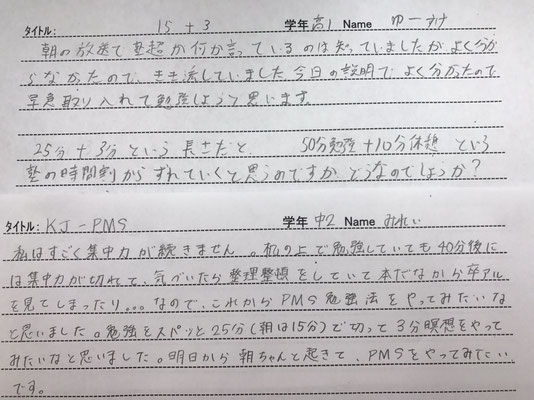 タイトル: 15 + 3 学年 高1 Name ゆーすけ
朝の放送で塾超が何か言っているのは知っていましたが よく分か
らなかったので、きき流していました。今日の説明で よく分かったので
早急取り入れて勉強しようと思います。
25分 + 3分 という 長さだと 50分勉強+10分休憩 という
塾の時間割から ずれていくと思うのですが どうなのでしょうか?
タイトル: KJ-PMS 学年 中2 Name みれい
私はすごく集中力が続きません。机の上で勉強していても40分後に
は集中力が切れて、気づいたら整理整頓をしていて本だなから卒アル
を見てしまったり。。。なので、これからPMS勉強法をやってみたいな
と思いました。勉強をスパッと25分(朝は15分)で切って3分瞑想をやって
みたいなと思いました。明日から朝ちゃんと起きて、PMSをやってみたい
です。